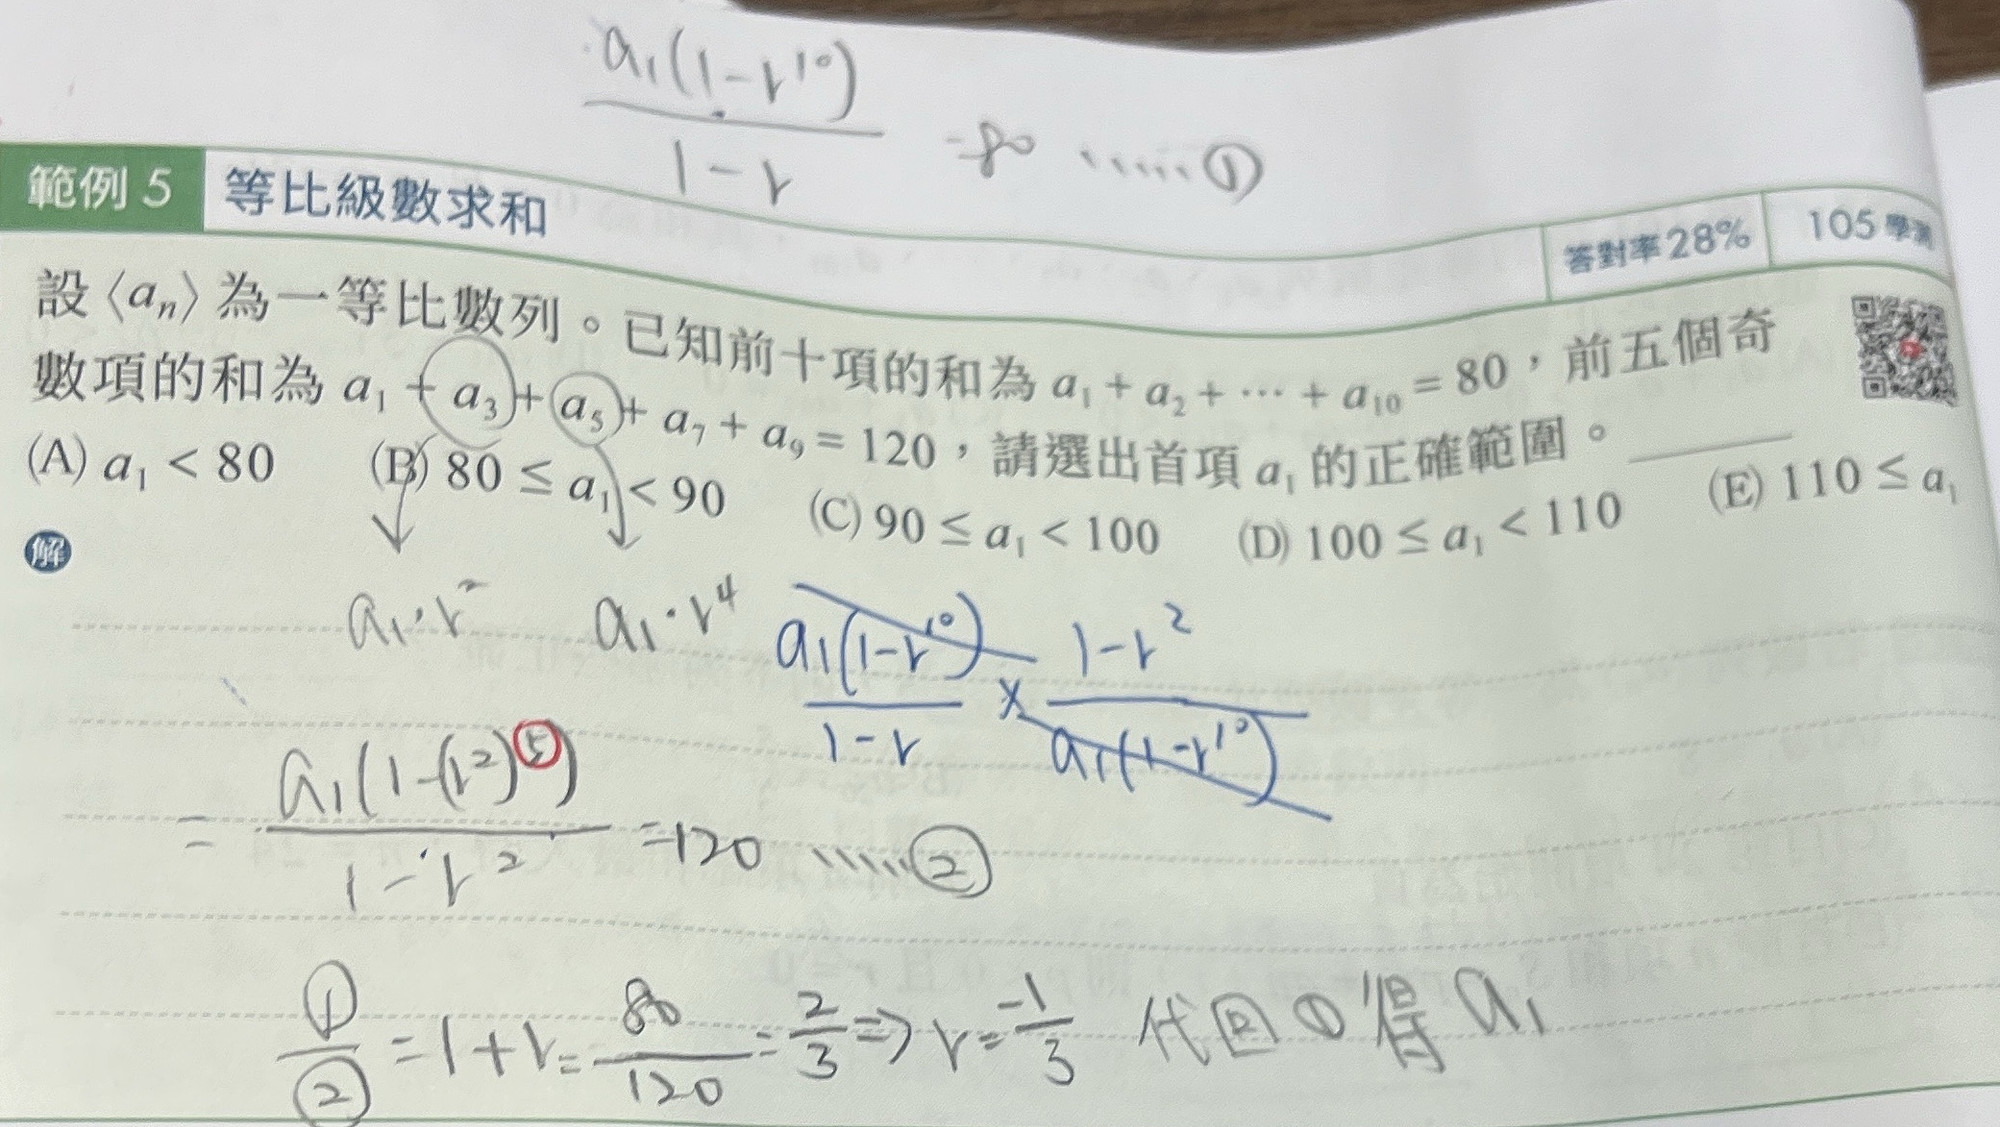 a₁(1-r¹⁰)
1-r
=80 ......①
範例 5 等比級數求和 答對率28% 105學測
設⟨aₙ⟩為一等比數列。已知前十項的和為 a₁ + a₂ + ⋯ + a₁₀ = 80,前五個奇
數項的和為 a₁ + a₃ + a₅ + a₇ + a₉ = 120,請選出首項 a₁ 的正確範圍。
(A) a₁ < 80 (B) 80 ≤ a₁ < 90 (C) 90 ≤ a₁ < 100 (D) 100 ≤ a₁ < 110 (E) 110 ≤ a₁
解
a₁·r² a₁·r⁴
a₁(1-r¹⁰)/1-r × 1-r²/a₁(1-r¹⁰)
= a₁(1-(r²)⁵)/1-r² =120 ......②
①/② = 1+r = 80/120 = 2/3 ⇒ r = -1/3 代回①得a₁